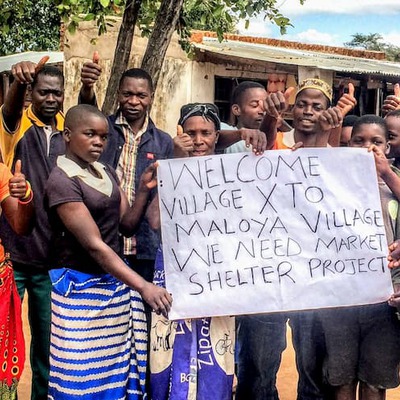 WELCOME
VILLAGE X TO
MALOYA VILLAGE
WE NEED MARKET
SHELTER PROJECT